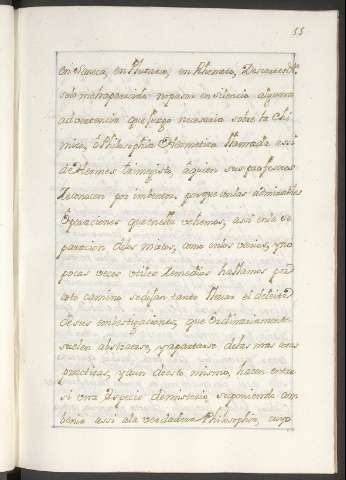 55
en Seneca, en Plutarco, en
solo me ha parecido no pasar en silencio alguna
advertencia que juzgo necesaria sobre la Chi
mica, ò Philosophia Hermetica llamada assi
de Hermes trimegisto, à quien sus professores
Reconocen por imbentor. porque en las admirables
Operaciones que en ella vehemos, assi en la se
paracion de los mixtos, como en los varios, y no
pocas veces utiles Remedios hallamos por
este camino se dejan tanto llevar el deleite
de sus imbestigaciones, que Ordinariamente
suelen abstraerse, y apartarse de las mas cosas
practicas, y aun de esto mismo, hacen entre
si una especie de misterio, siguiendo
assi à la verdadera Philosophia, cuyo